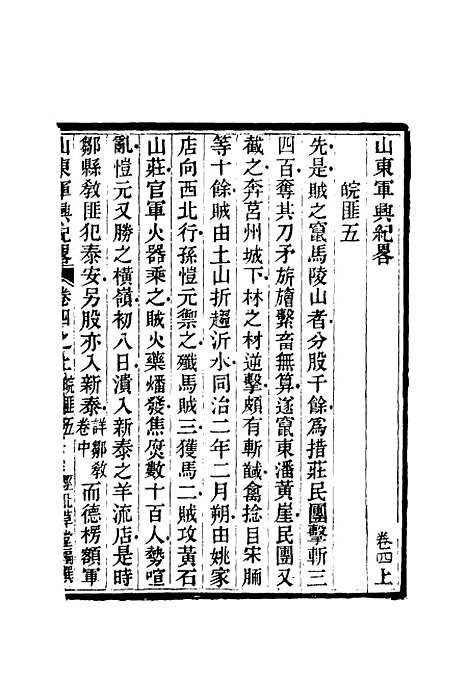 山東軍興紀畧　卷四上
皖匪五
先是賊之竄馬陵山者分股千餘爲措莊民團擊斬三
四百奪其刀矛旂旝繫畜無算遂竄東潘黃崖民團又
截之奔莒州城下林之材逆擊頗有斬馘禽捻目宋腼
等十餘賊由土山折趨沂水同治二年二月朔由姚家
店向西北行孫愷元禦之殲馬賊三獲馬二賊攻黃石
山莊官軍火器乘之賊火藥燔發焦爛數十百人勢喧
亂愷元又勝之橫嶺初八日潰入新泰之羊流店是時
鄒縣敎匪犯泰安另股亦入新泰詳鄒敎卷中而德楞額軍
山東軍興紀畧　卷四之上皖匪五